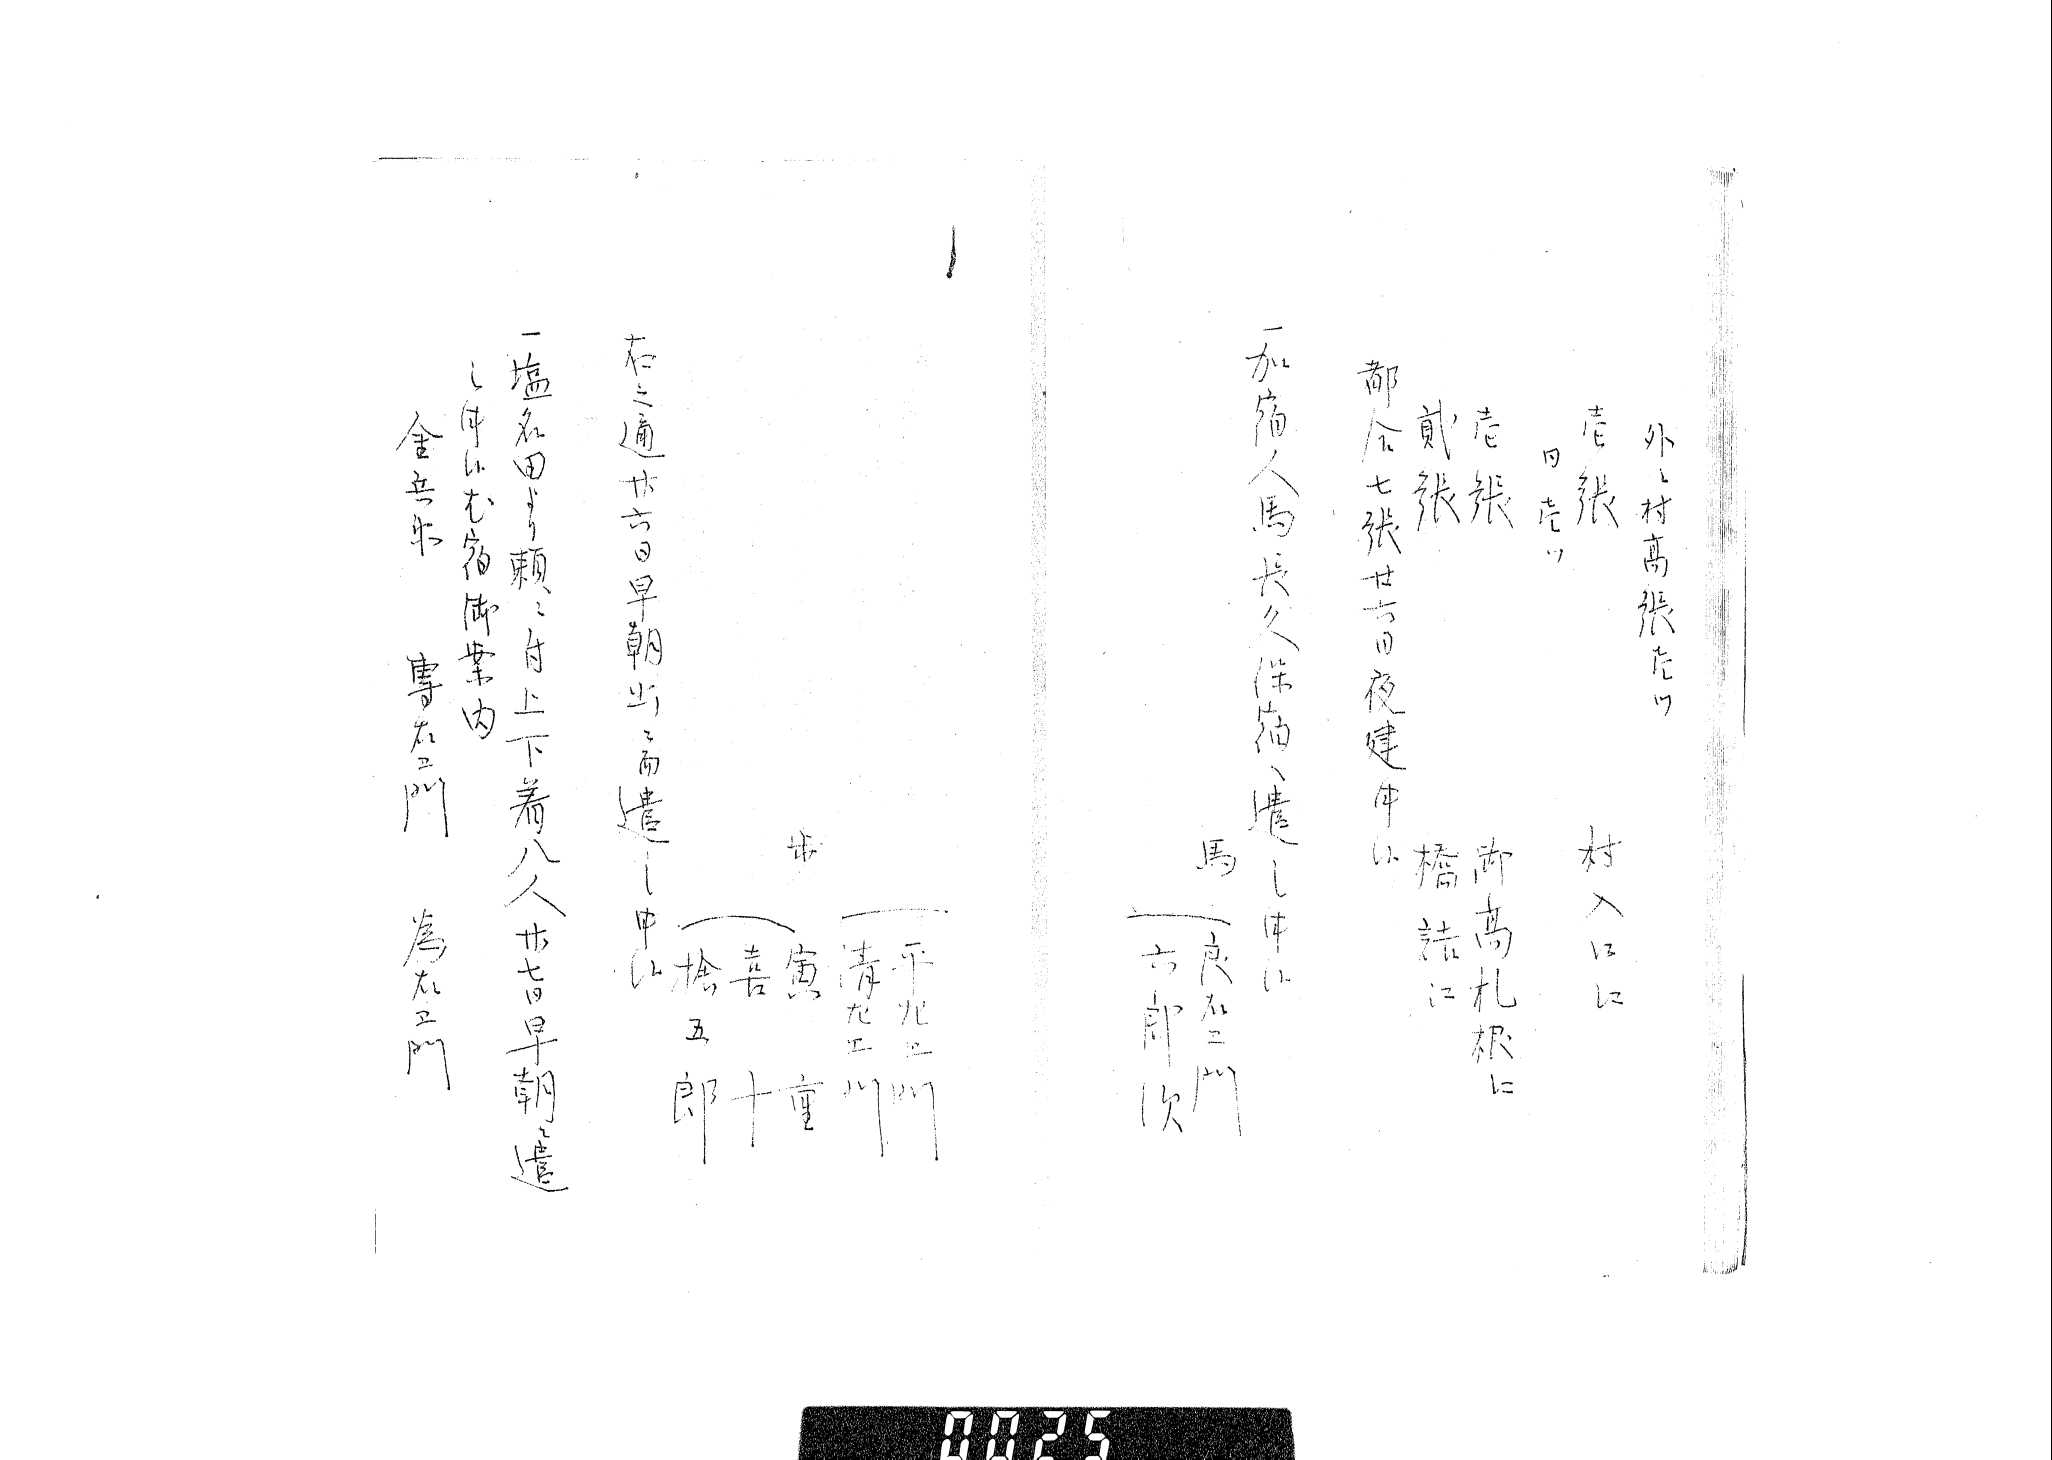 外ニ村高張壱ツ
壱張　村入口に
同壱ツ
壱張　御高札根に
貳張　橋詰に
都合七張廿六日夜建申候
一加宿人馬長久保宿へ遣し申候
馬　良右エ門
六郎次
平九エ門
清九エ門
歩　寅重
喜十
捨五郎
右之通廿六日早朝出ニ而遣し申候
一塩名田より頼ニ付上下着八人廿七日早朝ニ遣
し申候む宿御案内
金兵衛　専右エ門　為右エ門
0025